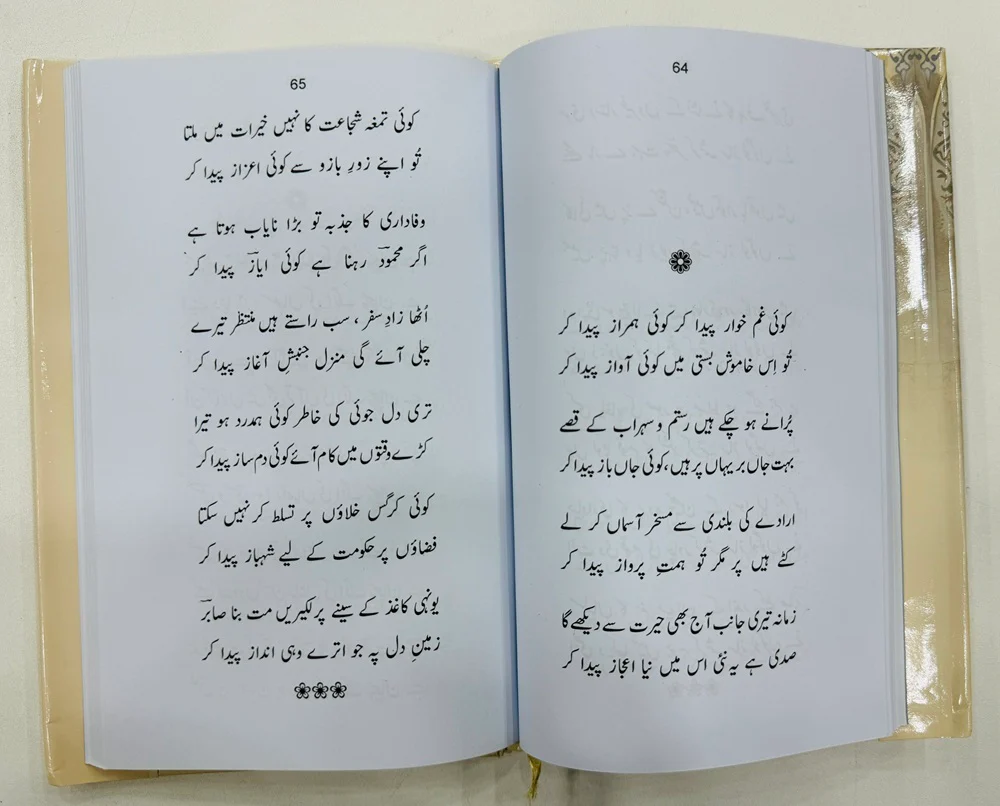 64
کوئی غم خوار پیدا کر کوئی ہمراز پیدا کر
تُو اِس خاموش بستی میں کوئی آواز پیدا کر
پُرانے ہو چکے ہیں رستم و سہراب کے قصے
بہت جاں بر یہاں پر ہیں، کوئی جاں باز پیدا کر
ارادے کی بلندی سے مسخر آسماں کر لے
کٹے ہیں پر مگر تُو ہمتِ پرواز پیدا کر
زمانہ تیری جانب آج بھی حیرت سے دیکھے گا
صدی ہے یہ نئی اس میں نیا اعجاز پیدا کر
65
کوئی تمغہ شجاعت کا نہیں خیرات میں ملتا
تُو اپنے زورِ بازو سے کوئی اعزاز پیدا کر
وفاداری کا جذبہ تو بڑا نایاب ہوتا ہے
اگر محمودؔ رہنا ہے کوئی ایازؔ پیدا کر
اُٹھا زادِ سفر، سب راستے ہیں منتظر تیرے
چلی آئے گی منزل جنبشِ آغاز پیدا کر
تری دل جوئی کی خاطر کوئی ہمدرد ہو تیرا
کڑے وقتوں میں کام آئے کوئی دم ساز پیدا کر
کوئی کرگس خلاؤں پر تسلط کر نہیں سکتا
فضاؤں پر حکومت کے لیے شہباز پیدا کر
یونہی کاغذ کے سینے پر لکیریں مت بنا صابرؔ
زمینِ دل پہ جو اترے وہی انداز پیدا کر